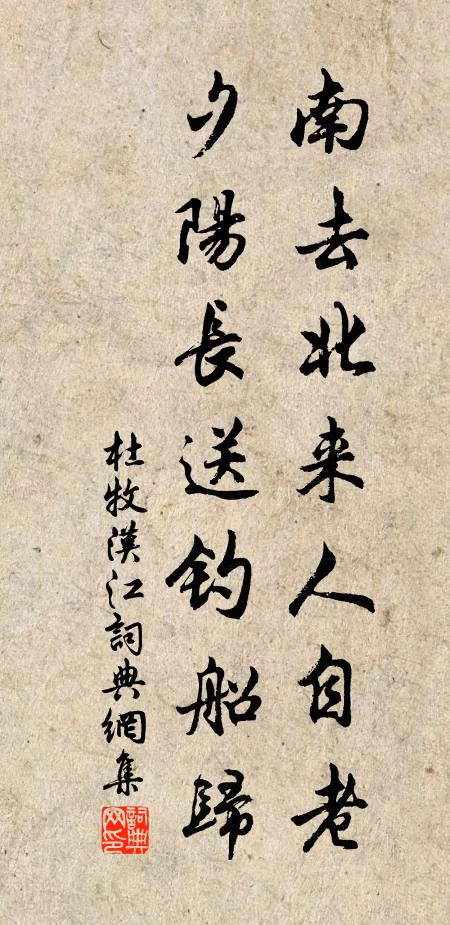 南去北来人自老
夕陽長送钓船歸
杜牧漢江詞典網集
詞典
网印